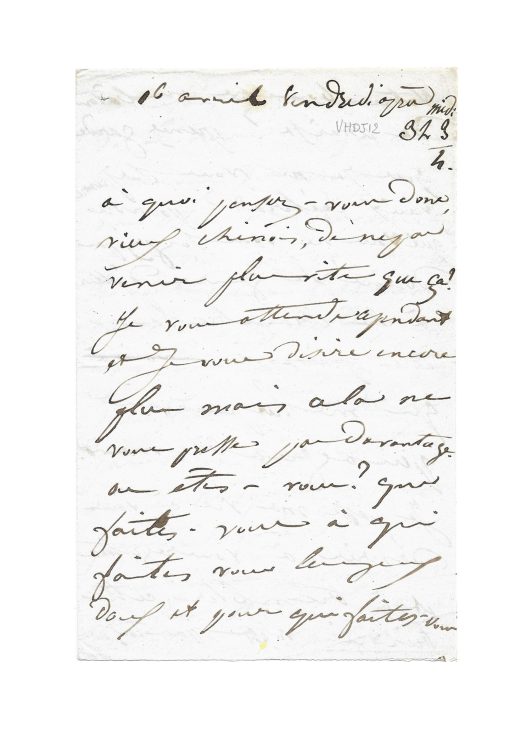 16 avril Vendredi après midi
VHDJ12
3 h 3
4.
à quoi pensez-vous donc,
vieux chinois, de ne pas
venir plus vite que ça?
Je vous attends cependant
et Je vous désire encore
plus mais cela ne
vous presse pas davantage.
où êtes-vous? que
faites-vous à qui
faites vous les yeux
doux et pour qui faites-vous